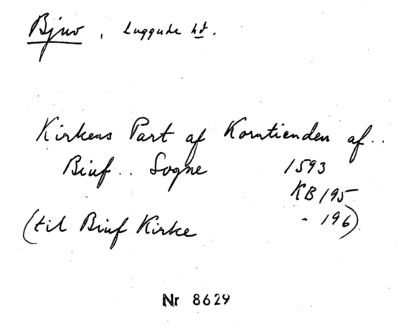 Bjuv, Luggude hd.
Kirkens Part af Korntienden af..
Biuf.. Sogne 1593
KB 195
- 196)
(til Biuf Kirke
Nr 8629